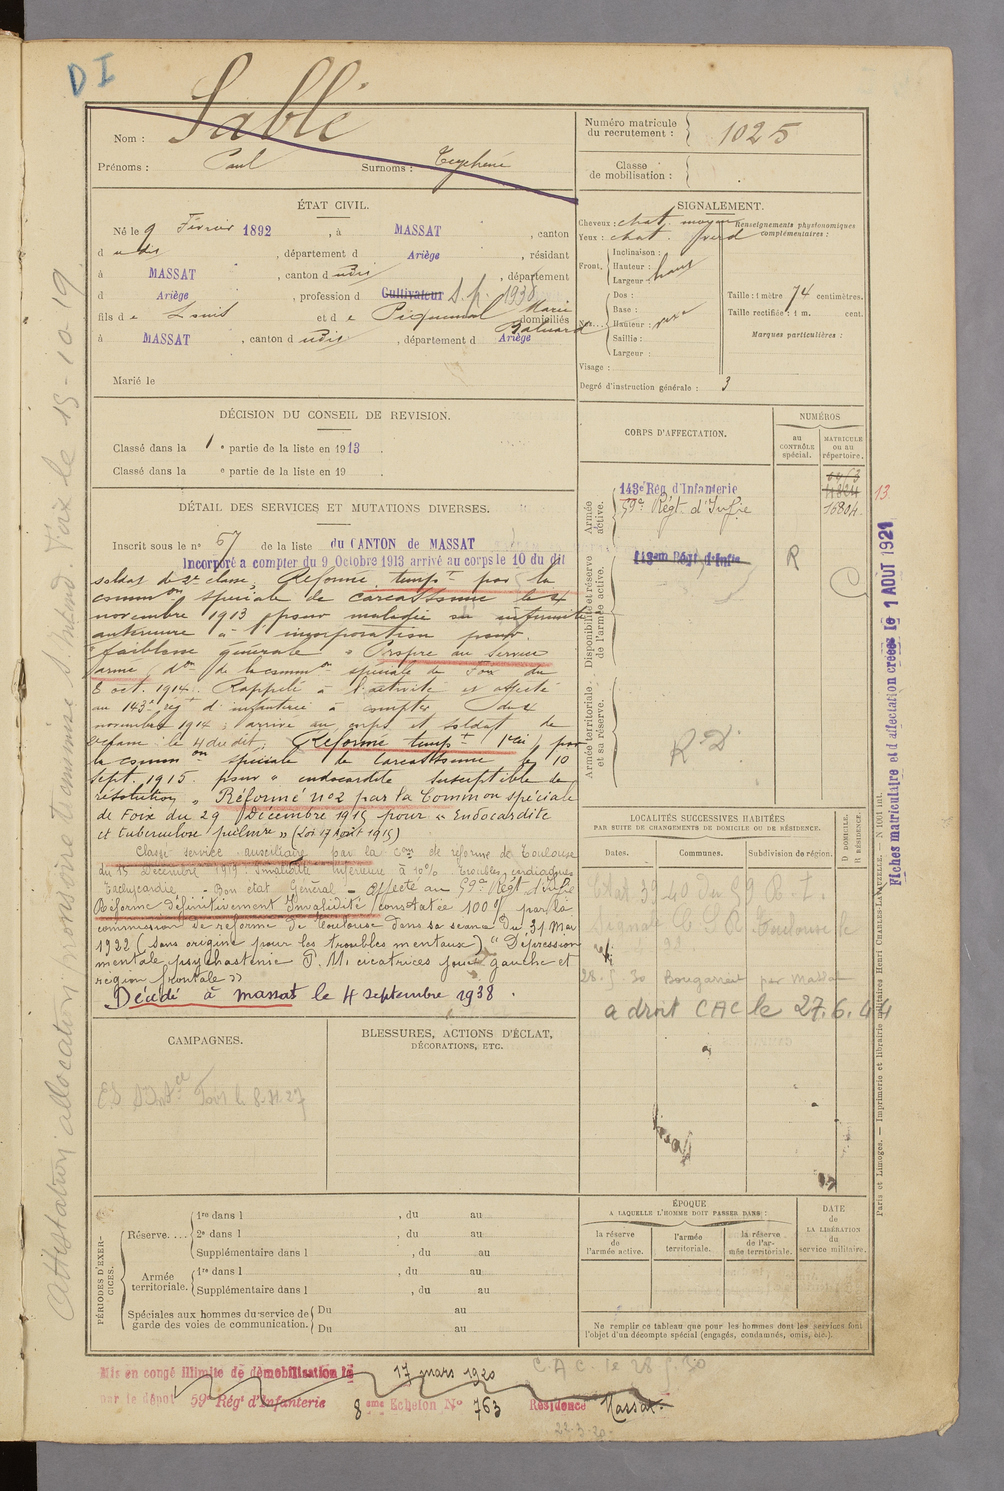 D I
Nom : Sablé
Prénoms : Paul Surnoms : Teychené
Numéro matricule du recrutement : 1025
Classe de mobilisation :
ÉTAT CIVIL.
Né le 9 Février 1892, à MASSAT, canton
d udit, département d Ariège, résidant
à MASSAT, canton d udit, département
d Ariège, profession d Cultivateur S.p. 1938
fils de Louis et de Piquemal Marie domiciliés
à MASSAT, canton d udit, département d Ariège
Marié le
SIGNALEMENT.
Cheveux : chat. moyen
Yeux : chat. foncé
Renseignements physionomiques complémentaires :
Front, Inclinaison :
Hauteur : haut
Largeur :
Nez, Dos :
Base :
Hauteur :
Saillie :
Largeur :
Taille : 1 mètre 74 centimètres.
Taille rectifiée : 1 m. cent.
Marques particulières :
Visage :
Degré d'instruction générale : 3
DÉCISION DU CONSEIL DE REVISION.
Classé dans la 1e partie de la liste en 1913.
Classé dans la e partie de la liste en 19 .
CORPS D'AFFECTATION.
NUMÉROS
au CONTRÔLE spécial.
MATRICULE ou au répertoire.
Armée active.
143e Rég. d'Infanterie
59e Régt d'Infie
11824
15804
13
Disponibilité et réserve de l'armée active.
143em Régt d'Infie
R
Armée territoriale et sa réserve.
R D.
DÉTAIL DES SERVICES ET MUTATIONS DIVERSES.
Inscrit sous le n° 57 de la liste du CANTON de MASSAT
Incorporé a compter du 9 Octobre 1913 arrivé au corps le 10 du dit
soldat de 2e classe. Réformé tempt par la
common spéciale de Carcassonne le 4
novembre 1913 pour maladie ou infirmité
antérieure à l'incorporation pour
"faiblesse générale" Propre au Service
armé don de la common spéciale de Foix du
8 oct. 1914. Rappelé à l'activité et affecté
au 143e régt d'infanterie à compter du 4
novembre 1914, arrivé au corps et soldat de
2e classe le 4 du dit. Réformé tempt par
la common spéciale de Carcassonne le 10
Sept. 1915 pour "endocardite susceptible de
résolution" Réformé n°2 par la Common spéciale
de Foix du 29 Décembre 1915 pour "Endocardite
et tuberculose pulmre" (Loi 17 Août 1915)
Classé service auxiliaire par la Con de réforme de Toulouse
du 15 Décembre 1919. Invalidité inférieure à 10% - Troubles cardiaques
Tachycardie - Bon état Général - Affecté au 59e Régt d'Infie
Réformé définitivement Invalidité constatée 100% par la
commission de réforme de Toulouse dans sa séance du 31 Mai
1922 (sans origine pour les troubles mentaux) "Dépression
mentale psychastenie P.M. cicatrices joue gauche et
région frontale"
Décédé à Massat le 4 Septembre 1938.
LOCALITÉS SUCCESSIVES HABITÉES
PAR SUITE DE CHANGEMENTS DE DOMICILE OU DE RÉSIDENCE.
Dates. Communes. Subdivision de région.
D DOMICILE. R RÉSIDENCE.
Toulouse le
28.5.30 Massat
a droit CAC le 27.6.44
CAMPAGNES.
Foix le 8.11.27
BLESSURES, ACTIONS D'ÉCLAT,
DÉCORATIONS, ETC.
PÉRIODES D'EXERCICES.
Réserve.... 1re dans l , du au
2e dans l , du au
Supplémentaire dans l , du au
Armée territoriale. 1re dans l , du au
Supplémentaire dans l , du au
Spéciales aux hommes du service de garde des voies de communication. Du au
Du au
ÉPOQUE
A LAQUELLE L'HOMME DOIT PASSER DANS :
la réserve de l'armée active.
l'armée territoriale.
la réserve de l'armée territoriale.
DATE de LA LIBÉRATION du service militaire.
Ne remplir ce tableau que pour les hommes dont les services font
l'objet d'un décompte spécial (engagés, condamnés, omis, etc.).
Mis en congé illimité de démobilisation le 17 mars 1920
par le dépôt 59e Rég' d'Infanterie 8ème Echelon N° 763 Résidence Massat
C.A.C. le 28.5.30
Attestation allocation provisoire transmise S. Intend. Foix le 15-10-19
Fiches matriculaire et d'affectation créées le 1 AOUT 1921
Paris et Limoges. — Imprimerie et librairie militaires Henri CHARLES-LAVAUZELLE. — N° 1001 int.